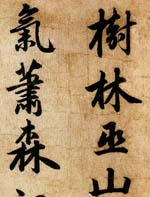 樹林巫山
氣蕭森